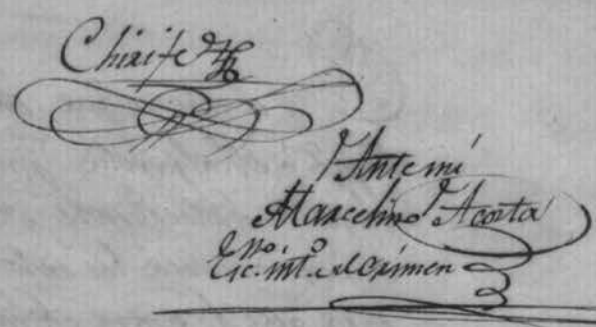 Chirife
Ante mí
Marcelino Acosta
Esc.no int.o del Crimen